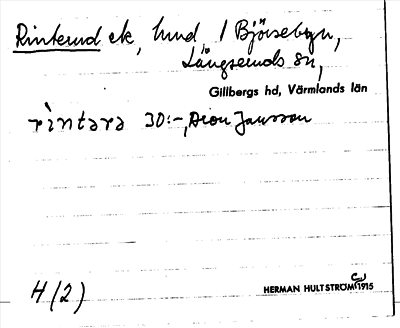 Rinterud ek, hmd i Björsebyn,
Långseruds sn,
Gillbergs hd, Värmlands län
rìntərə 30:-, Aron Jansson
H (2)
HERMAN HULTSTRÖM 1915